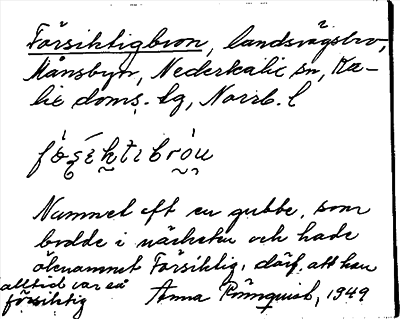 Försiktigbron, landsvägsbro,
Månsbyn, Nederkalix sn, Ka-
lix doms. tg, Norrb. l
Namnet eft en gubbe, som
bodde i närheten och hade
öknamnet Försiktig, därf. att han
alltid var så
försiktig
Anna Rönnquist, 1949